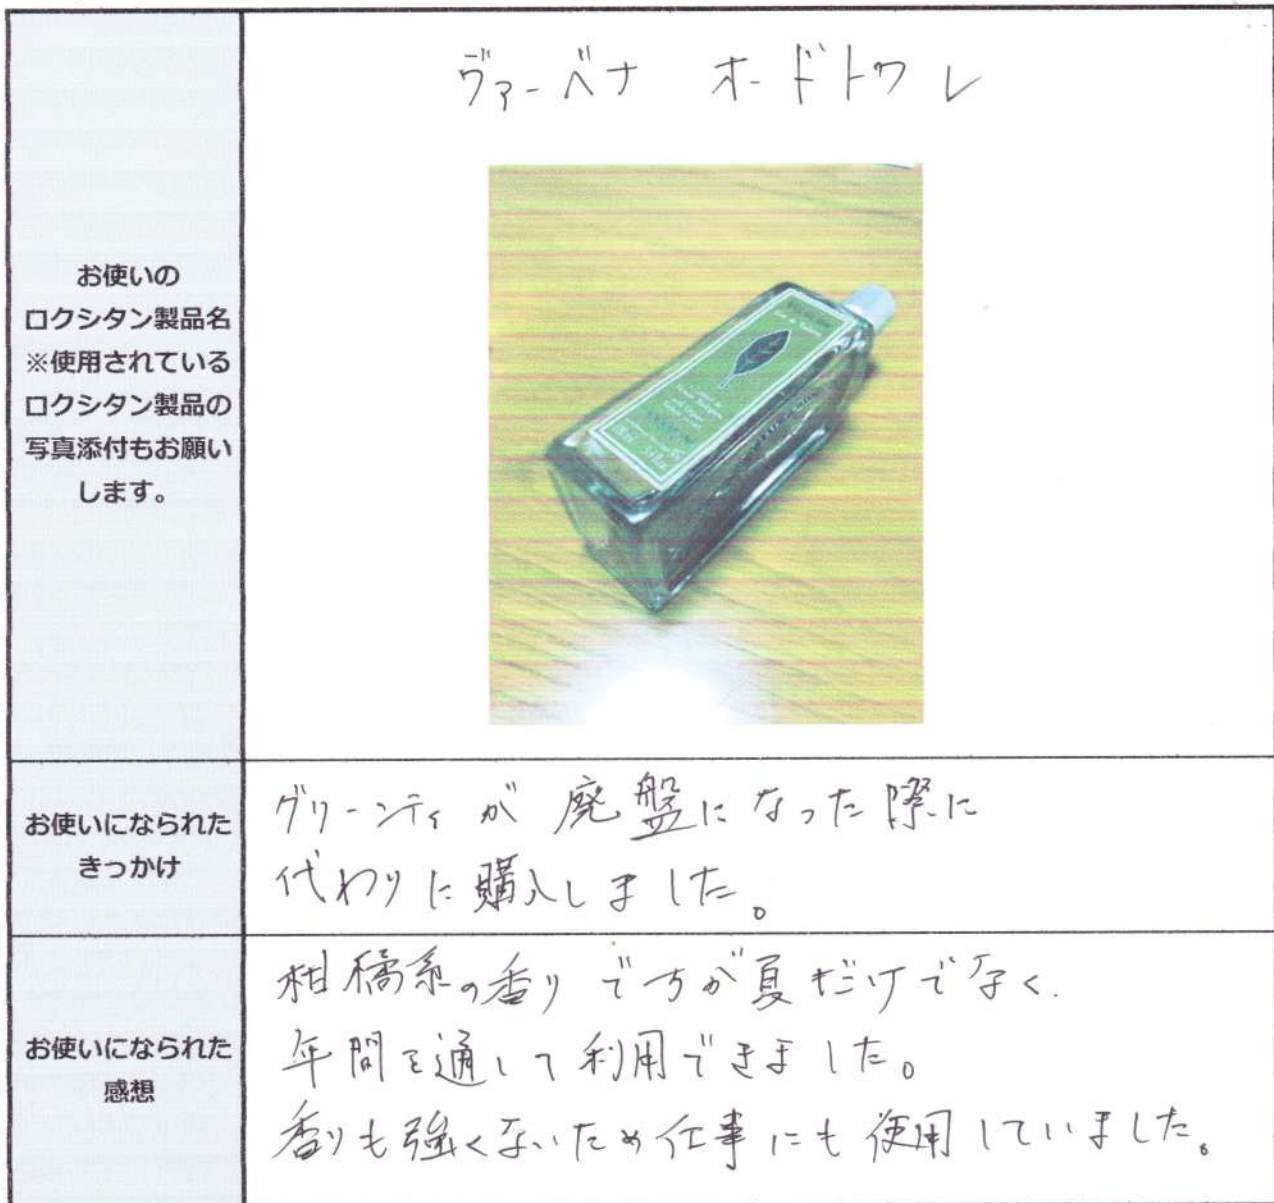 ヴァーベナ オードトワレ
お使いの
ロクシタン製品名
※使用されている
ロクシタン製品の
写真添付もお願い
します。
お使いになられた
きっかけ
グリーンティが廃盤になった際に
代わりに購入しました。
お使いになられた
感想
柑橘系の香りですが夏だけでなく
年間を通して利用できました。
香りも強くないため仕事にも使用していました。